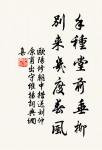 手種堂前垂柳
別來幾度春風
歐陽修朝中措送劉仲
原甫出守維揚詞典網
集